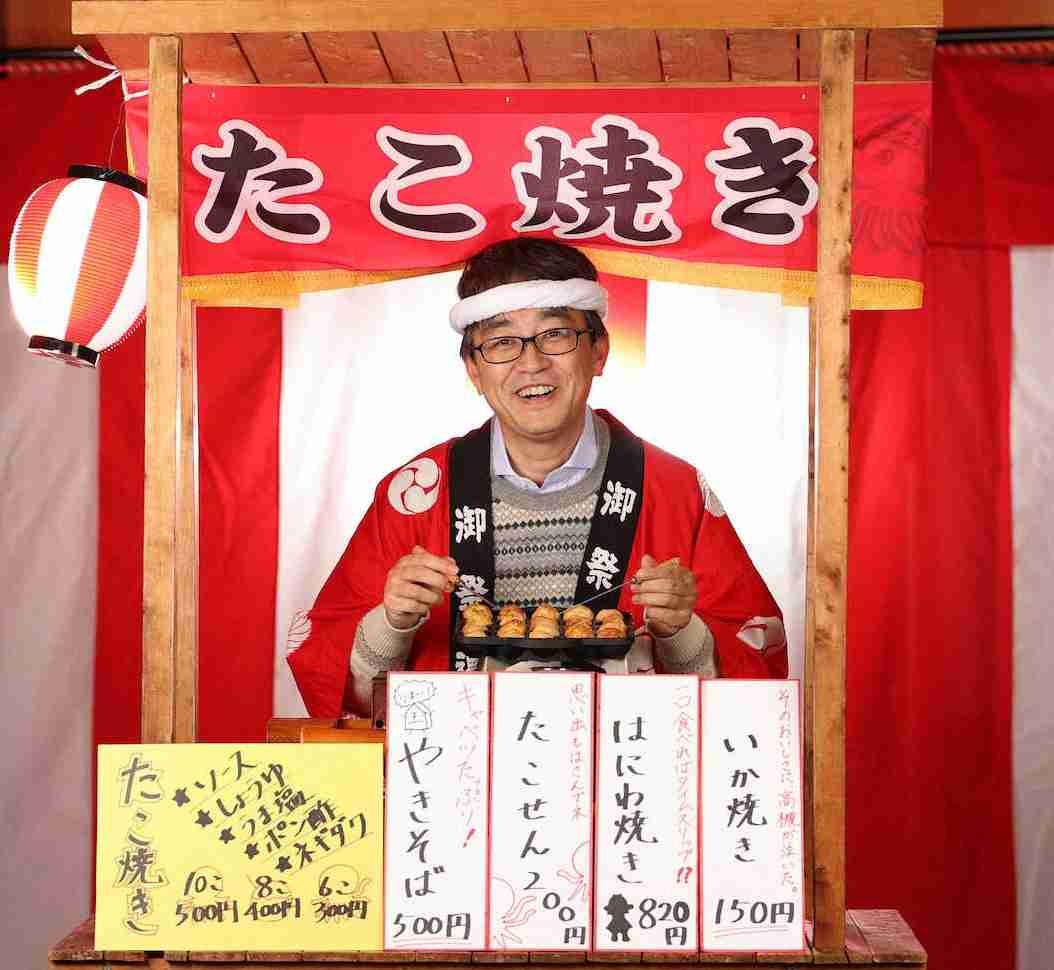 たこ焼き
御祭
御祭
たこ焼き
★ソース
★しょうゆ
★うま塩
★ポン酢
★ネギダク
10こ 8こ 6こ
500円 400円 300円
キャベツたっぷり!
やきそば
500円
思い出もはさんで
たこせん200円
一口食べればタイムスリップ!?
はにわ焼き
820円
そのおいしさに、高槻が泣いた。
いか焼き
150円